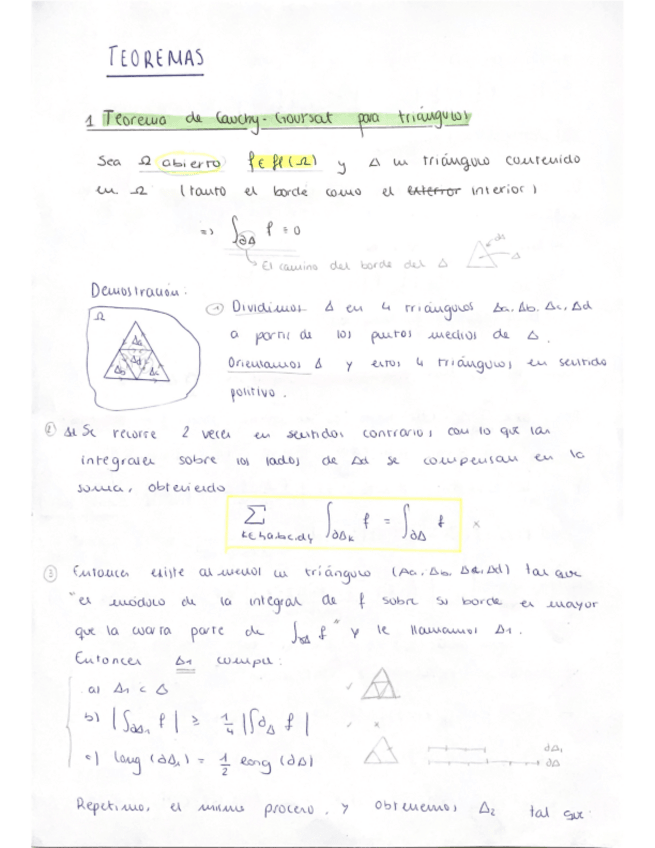 TEOREMAS
1 Teorema de Cauchy-Goursat para triángulos
Sea Ω abierto f ∈ H(Ω) y Δ un triángulo contenido
en Ω (tanto el borde como el exterior interior)
=> ∫∂Δ f = 0
El camino del borde del Δ
∂Δ
Δ
Demostración:
Ω
Δa
Δd
Δb Δc
① Dividimos Δ en 4 triángulos Δa, Δb, Δc, Δd
a partir de los puntos medios de Δ.
Orientamos Δ y estos 4 triángulos en sentido
positivo.
② Se recorre 2 veces en sentidos contrarios con lo que las
integrales sobre los lados de Δd se compensan en la
suma, obteniendo
∑ k∈{a,b,c,d} ∫∂Δk f = ∫∂Δ f
③ Entonces existe al menos un triángulo (Δa, Δb, Δc, Δd) tal que
"el módulo de la integral de f sobre su borde es mayor
que la cuarta parte de ∫∂Δ f" y le llamamos Δ1.
Entonces Δ1 cumple:
a) Δ1 ⊂ Δ
b) |∫∂Δ1 f| ≥ 1/4 |∫∂Δ f|
c) long (∂Δ1) = 1/2 long (∂Δ)
∂Δ1
∂Δ
Repetimos el mismo proceso, y obtenemos Δ2 tal que: